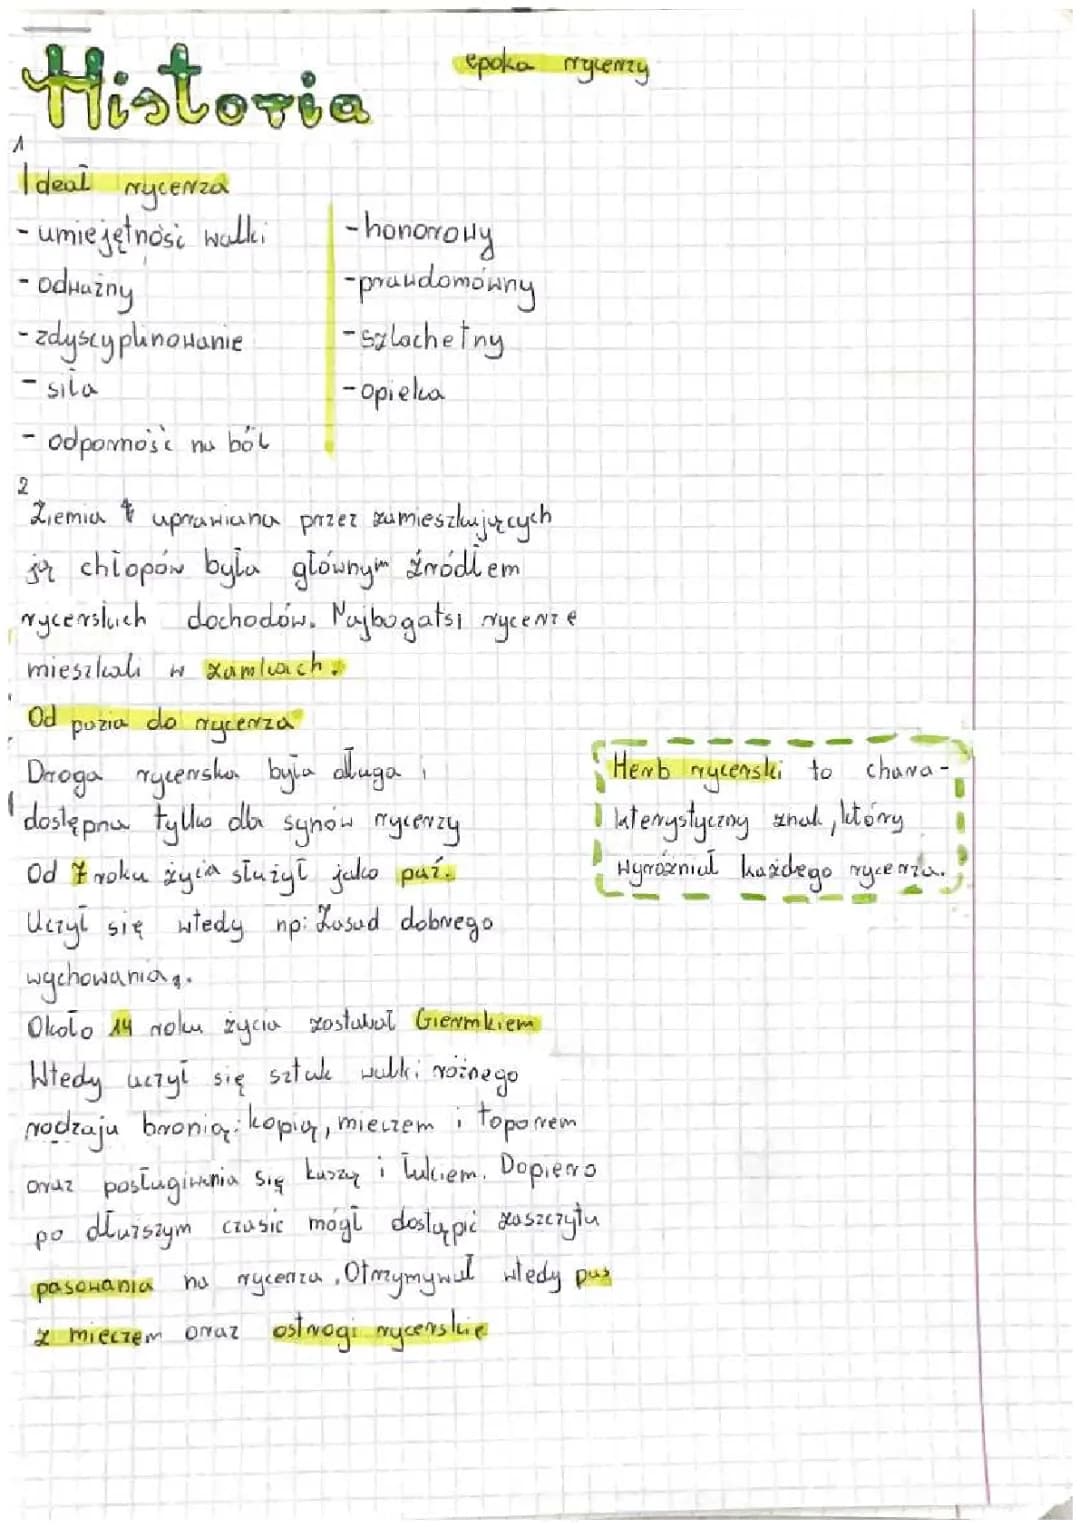 Historia
epoka rycerzy
1
Ideał rycerza
- umiejętność walki
- odważny
- zdyscyplinowanie
- siła
- odporność na ból
- honorowy
- prawdomówny
- szlachetny
- opieka
2
Ziemia uprawiana przez zamieszkujących
ją chłopów była głównym źródłem
rycerskich dochodów. Najbogatsi rycerze
mieszkali w zamkach.
Od pazia do rycerza
Droga rycerska była długa i
dostępna tylko dla synów rycerzy
Od 7 roku życia służył jako paź.
Uczył się wtedy np: Zasad dobrego
wychowania.
Około 14 roku życia zostawał Giermkiem
Wtedy uczył się sztuk walki różnego
rodzaju bronią: kopią, mieczem i toporem
oraz posługiwania się kuszą i łukiem. Dopiero
po dłuższym czasie mógł dostąpić zaszczytu
pasowania na rycerza. Otrzymywał wtedy pas
z mieczem oraz ostrogi rycerskie
Herb rycerski to chara-
kterystyczny znak, który
wyróżniał każdego rycerza.